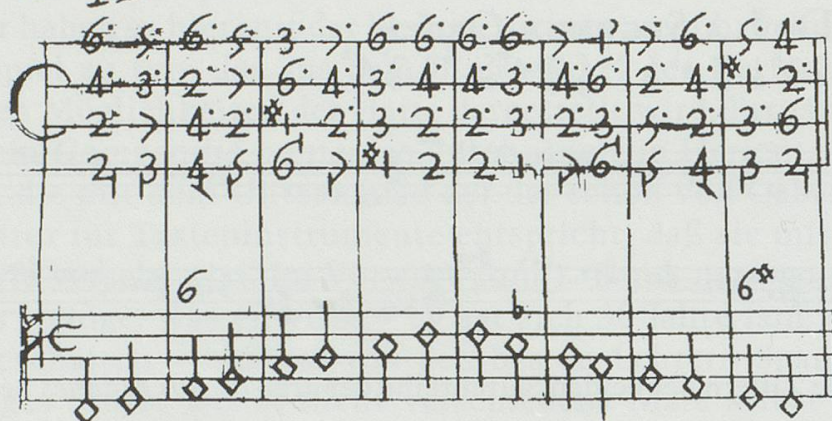 6· 5· 6· 5· 3· 7· 6· 6· 6· 6· 7· 1' 7 6· 5· 4·
4· 3· 2· 7· 6· 4· 3· 4· 4· 3· 4 6 2· 4· *1 2·
2· 7 4· 2· *1· 2· 3 2· 2· 3· 2· 3· 5· 2· 3· 6
2 3 4 5 6 7 *1 2 2 1 7 6 5 4 3 2
6 b 6*